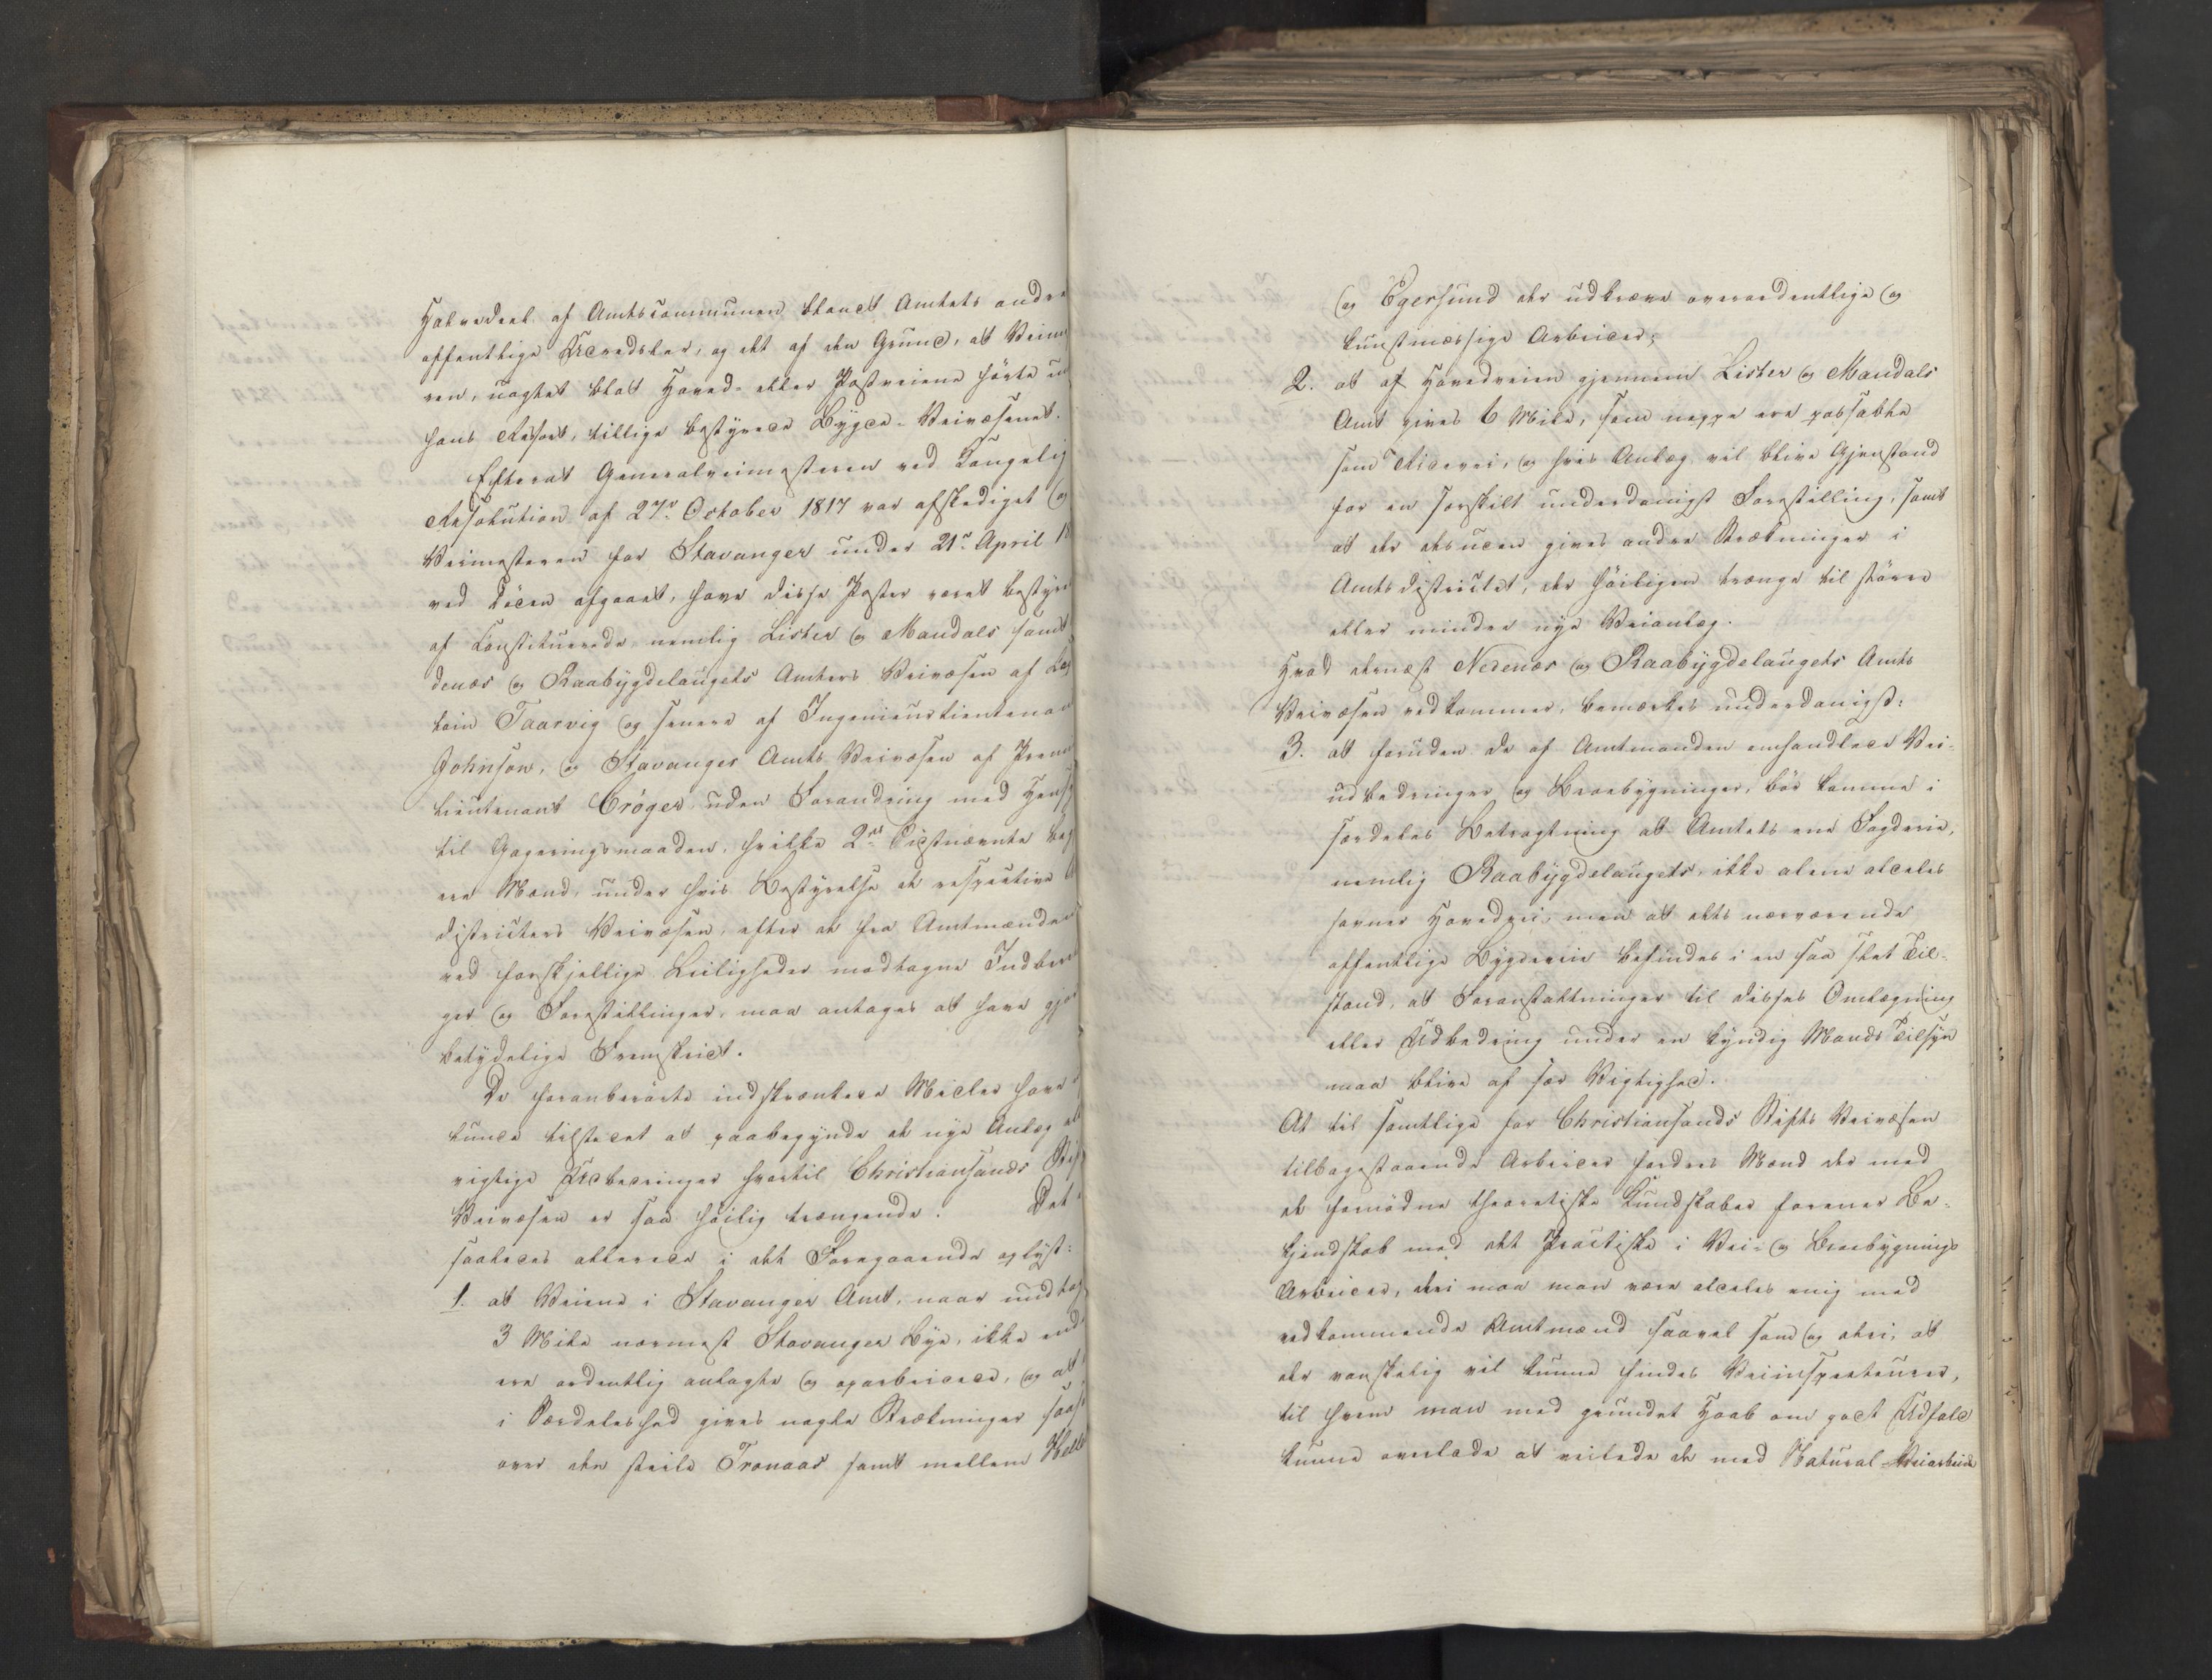 Halvedeel af Amtscommunen blandt Amtets andre
offentlige Udredsler, og det af den Grund, at Veime
ren, uagtet blot Hoved- eller Postveiene hörte un
hans Ressort, tillige bestyrede Bygde-Veivæsenet.
Efterat Generalveimesteren ved Kongelig
Resolution af 27de October 1817 var afskediget og
Veimesteren for Stavanger under 21de April 18
ved Döden afgaaet, have disse Poster været bestyre
af Constituerede, nemlig Lister og Mandals samt
denæs og Raabygdelaugets Amters Veivæsen af Cap
tain Taarvig og senere af Ingenieurlieutenan
Johnson, og Stavanger Amts Veivæsen af Prem
lieutenant Cröger uden Forandring med Hens
til Gageringsmaaden, hvilke 2de sidstnævnte beg
ere Mænd, under hvis Bestyrelse de respective A
districters Veivæsen, efter de fra Amtmændene
ved forskjellige Leiligheder modtagne Indberet
ger og Forestillinger, maa antages at have gjor
betydelige Fremskridt.
De foranberörte indskrænkede Midler have
kunde tilstedet at paabegynde de nye Anlæg el
vigtige Udbedringer hvortil Christiansands Stif
Veivæsen er saa höilig trængende. Det
saaledes allerede i det Foregaaende oplyst:
1. at Veiene i Stavanger Amt, naar undtag
3 Mile nærmest Stavanger Bye, ikke end
ere ordentlig anlagte og oparbeidede, og at
i Særdeleshed gives nogle Strækninger saas
over den steile Tronaas samt mellem Hell
og Egersund der udkræve overordentlige og
kunstmæssige Arbeider;
2. at af Hovedveien gjennem Lister og Mandals
Amt gives 6 Mile, som neppe ere passable
som Ridevei, og hvis Anlæg vil blive Gjenstand
for en særskilt underdanigst Forestilling, samt
at der desuden gives andre Strækninger i
Amtsdistrictet, der höiligen trænge til större
eller mindre nye Veianlæg.
Hvad dernæst Nedenæs og Raabygdelaugets Amts
Veivæsen vedkommer, bemærkes underdanigst:
3. at foruden de af Amtmanden omhandlede Vei-
udbedringer og Broebygninger, bör komme i
særdeles Betragtning at Amtets ene Fogderie,
nemlig Raabygdelaugets, ikke alene aldeles
savner Hovedvei, men at dets nærværende
offentlige Bygdeveie befindes i en saa slet Til-
stand, at Foranstaltninger til disses Omlægning
eller Udbedring under en kyndig Mands Tilsyn
maa blive af sær Vigtighed.
At til samtlige for Christiansands Stifts Veivæsen
tilbagestaaende Arbeider fordres Mænd der med
de fornödne theoretiske Kundskaber forener Be-
kjendskab med det Practiske i Vei- og Broebygnings
Arbeider, deri maa man være aldeles enig med
vedkommende Amtmænd saavel som og deri, at
der vanskelig vil kunne findes Veiinspecteurer,
til hvem man med grundet Haab om godt Udfald
kunne overlade at veilede de med Natural-Veiarbeide